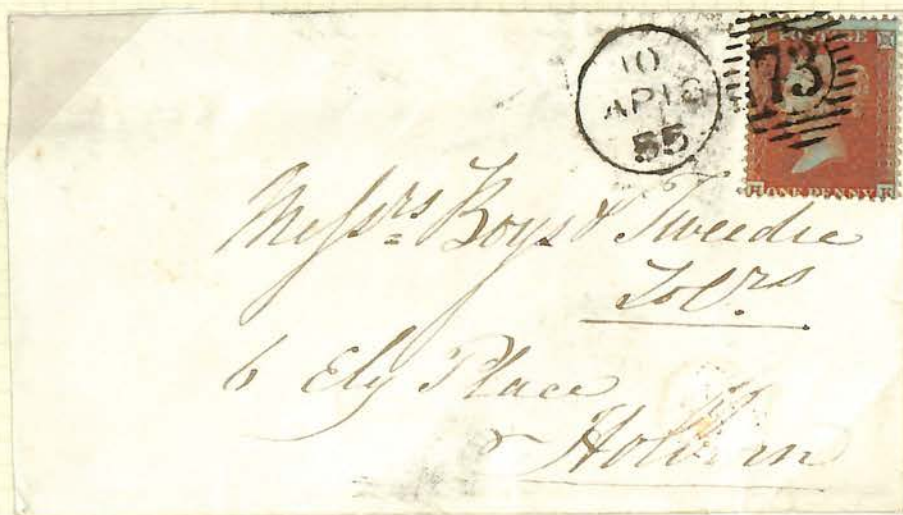 10
AP 16
55
73
POSTAGE
H ONE PENNY K
Messrs Boys & Tweedie
Solrs.
6 Ely Place
Holborn